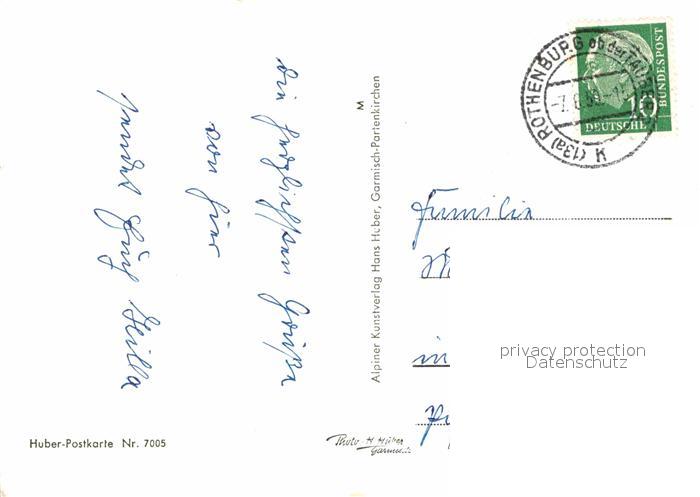 Die herzlichsten Grüße
von hier
sendet Euch
M
Alpiner Kunstverlag Hans Huber, Garmisch-Partenkirchen
(13a) ROTHENBURG ob der TAUBER
K
10
DEUTSCHE
BUNDESPOST
Familie
in
privacy protection
Datenschutz
Huber-Postkarte Nr. 7005
Photo-H. Huber
Garmisch